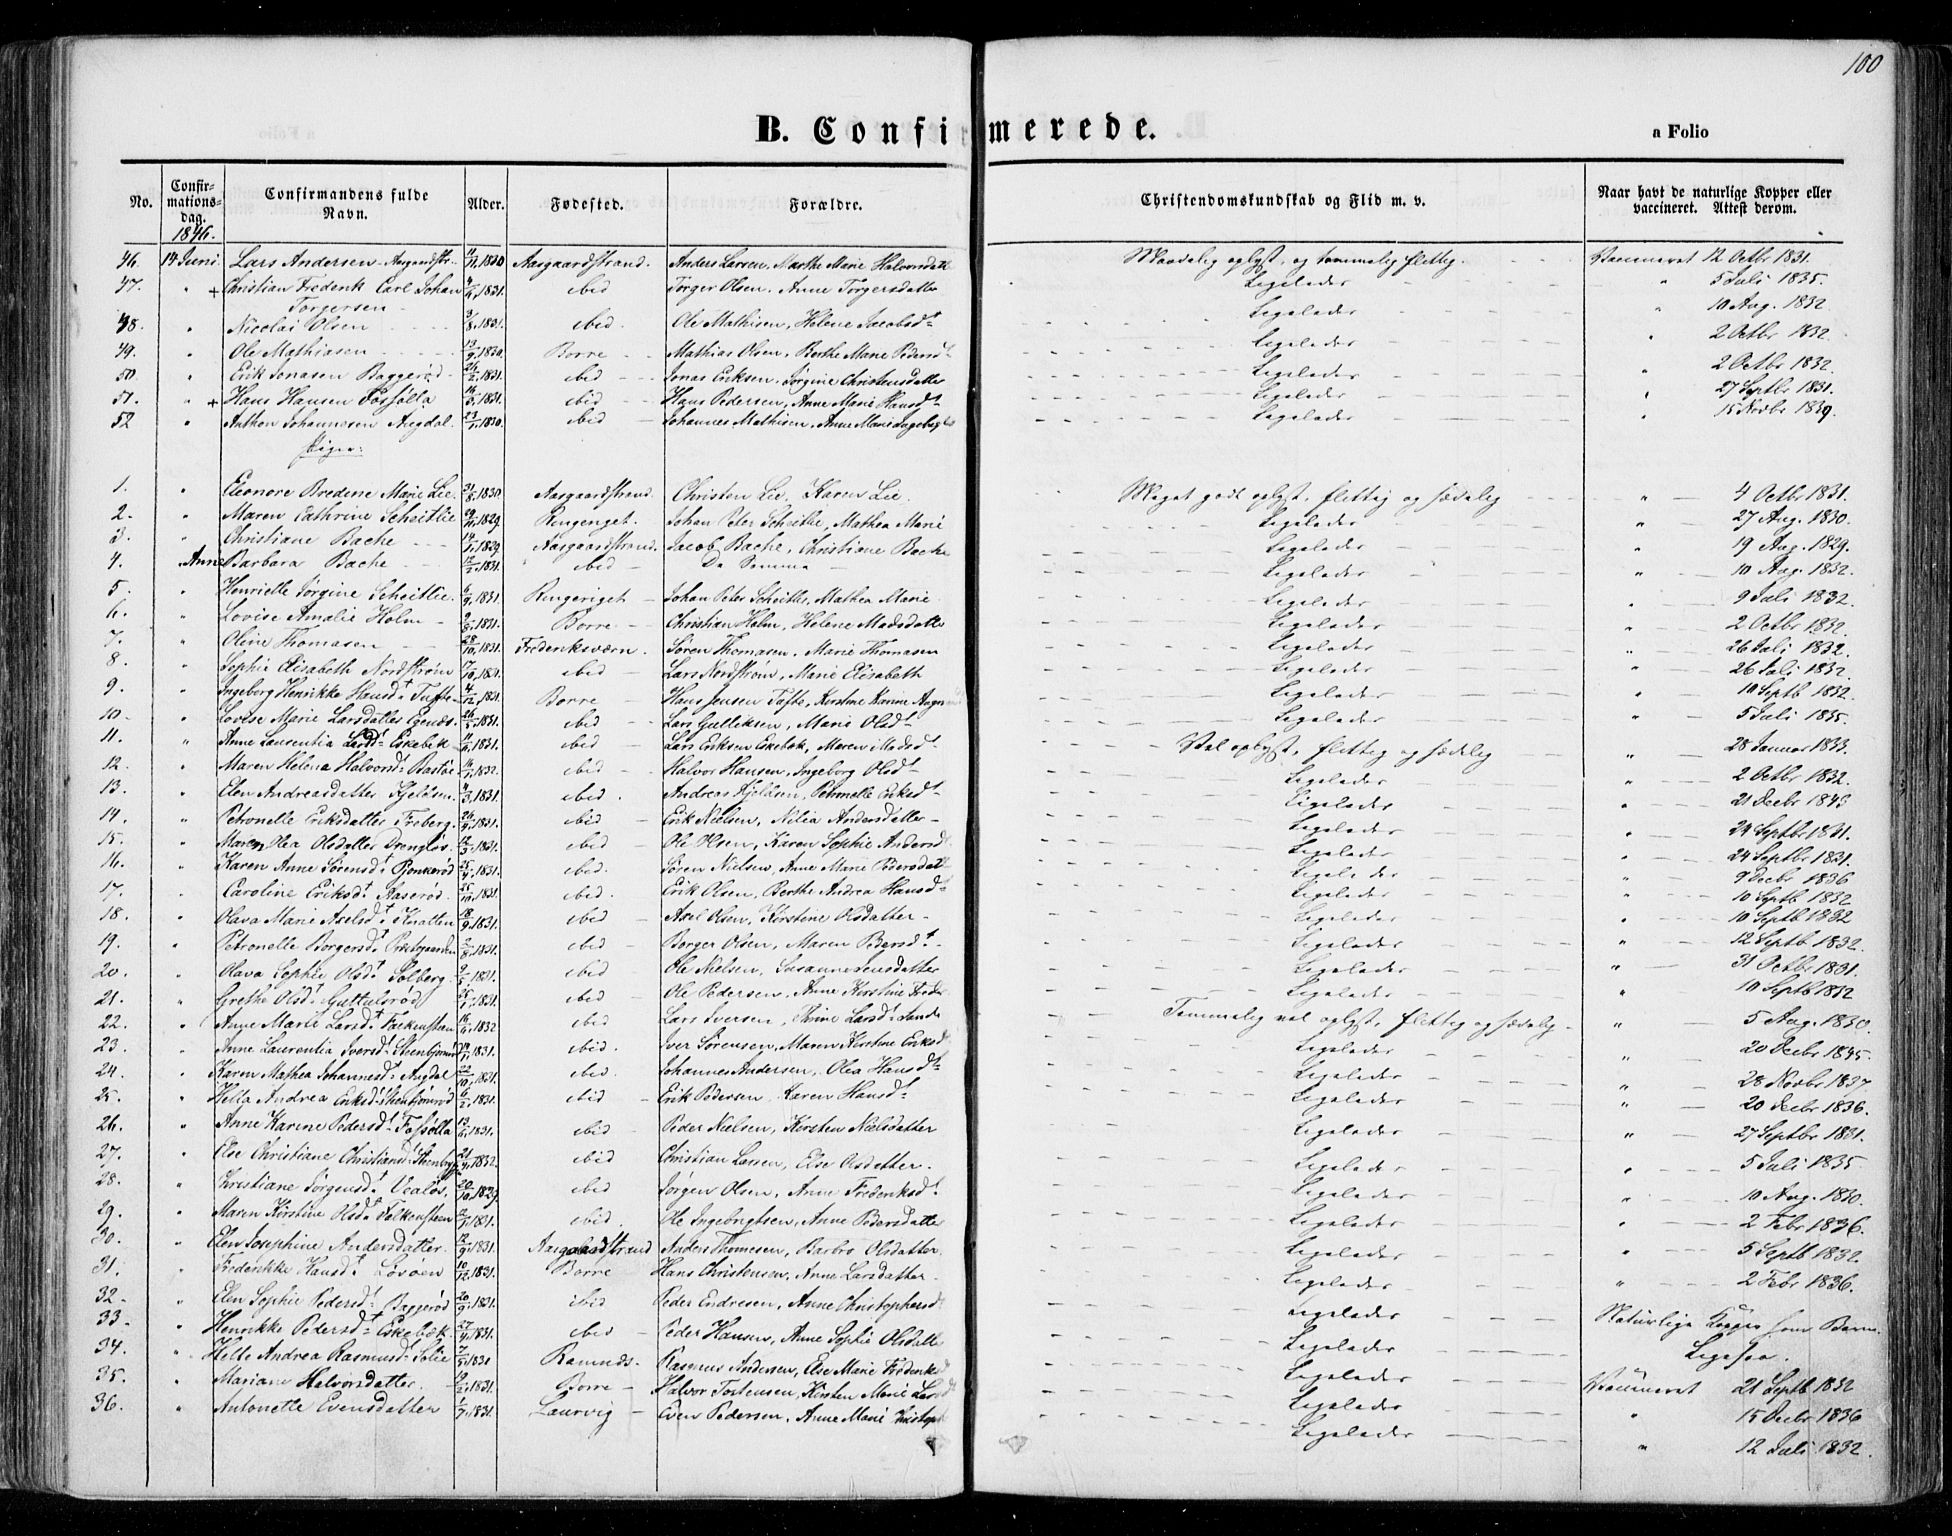 100
B. Confirmerede.
a Folio
No. Confirmationsdag. Confirmandens fulde Navn. Alder. Fødested. Forældre. Christendomskundskab og Flid m. v. Naar havt de naturlige Kopper eller vaccineret. Attest derom.
1846.
46. 14 Juni Lars Andersen Aasgaardstr. 1830 Aasgaardstrand. Anders Larsen, Marthe Marie Halvorsdatt Maadelig oplyst, og temmelig flittig. Vaccineret 12 Octbr 1831.
47. " + Christian Frederik Carl Johan Torgersen 1831. ibid Torger Olsen, Anne Torgersdatter Ligeledes " 5 Juli 1835.
48. " Nicolai Olsen 3/8 1831. ibid. Ole Mathisen, Helene Jacobsdt Ligeledes " 10 Aug. 1832
49. " Ole Mathiasen 13/9 1830. Borre Mathias Olsen, Berthe Marie Pedersdt Ligeledes 2 Octbr 1832.
50. " Erik Jonasen Baggerød 26/2 1831. ibid Jonas Eriksen, Jørgine Christensdatter Ligeledes " 2 Octbr 1832.
51. " + Hans Hansen Fossølla 1831. ibid Hans Pedersen, Anne Marie Hansdt Ligeledes " 27 Septbr 1831.
52 " Anthon Johannesen Augdal. 1830. ibid Johannes Mathisen, Anne Marie Ligeledes " 15 Novbr 1839.
Piger:
1. " Eleonore Bredene Marie Lie. 31/8 1830. Aasgaardstrand. Christen Lie, Karen Lie. Meget godt oplyst, flittig og sædelig " 4 Octbr 1831.
2. " Maren Cathrine Scheitlie 29/11 1829. Johan Peter Scheitlie, Mathea Marie Ligeledes " 27 Aug. 1830.
3. " Christiane Bache 14/1 1829. Aasgaardstrand. Jacob Bache, Christiane Bache Ligeledes " 19 Aug. 1829.
4. " Anne Barbara Bache 12/2 1831. ibid Do Samme Ligeledes " 10 Aug. 1832.
5. " Henriette Jørgine Scheitlie. 6/9 1831. Ringeriget Johan Peter Scheitlie, Mathea Marie Ligeledes " 9 Juli 1832.
6. " Lovise Amalie Holm 2/8 1831. Borre Christian Holm, Helene Madsdatter Ligeledes " 2 Octbr 1832.
7. " Oline Thomasen 28/10 1831. Frederiksværn. Søren Thomasen, Marie Thomasen Ligeledes " 26 Juli 1832.
8. " Sophie Elisabeth Nordstrøm 17/10 1831. ibid Lars Nordstrøm, Marie Elisabeth Ligeledes " 26 Juli 1832.
9. " Ingeborg Henrikke Hansdt Tufte 4/12 1831. Borre Hans Jensen Tufte, Kirstine Karine Ligeledes " 10 Septb 1832.
10. " Lovise Marie Larsdatter 26/5 1831. ibid Lars Gulliksen, Marie Olsdt Ligeledes " 5 Juli 1835.
11. " Anne Laurentia Larsdt Eskebek 1831. ibid Lars Eriksen Eskebæk, Maren Madsdt Vel oplyst, flittig og sædelig " 28 Januar 1833.
12. " Maren Helena Halvorsdt Bastøe 1832. ibid Halvor Hansen, Ingeborg Olsdt Ligeledes " 2 Octbr 1832.
13. " Elen Andreasdatter Kjeldsen. 4/3 1831. ibid. Andreas Kjeldsen, Petronelle Eriksdt Ligeledes " 21 Decbr 1843
14. " Petronelle Eriksdatter Freberg. 1831. ibid Erik Nielsen, Nilia Andersdatter Ligeledes " 24 Septbr 1831.
15. " Maren Olea Olsdatter 12/3 1831. ibid Ole Olsen, Karen Sophie Andersd Ligeledes " 24 Septbr 1831.
16. " Karen Anne Sørensdt 25/4 1831. ibid. Søren Nielsen, Anne Marie Pedersdatt Ligeledes " 9 Decbr 1836
17. " Caroline Eriksdt 25/10 1831. ibid. Erik Olsen, Berthe Andrea Hansdt Ligeledes " 10 Septb 1832
18. " Olava Marie Axelsdt 18/9 1831. ibid Axel Olsen, Kirstine Olsdatter Ligeledes " 10 Septb 1832
19. " Petronelle Borgersdt Præstegaarden 2/8 1831. ibid Borger Olsen, Maren Pedersdt Ligeledes " 12 Septb 1832.
20. " Olava Sophie Olsdt Solberg. 1831. ibid Ole Nielsen, Susanne Jensdatter Ligeledes " 31 Octbr 1831.
21. " Grethe Olsdt 1831. ibid Ole Pedersen, Anne Kirstine Ligeledes " 10 Septb 1832
22. " Anne Marie Larsdt Falkensteen 1832 ibid Lars Iversen, Larsdt Temmelig vel oplyst, flittig og sædelig " 5 Aug. 1830.
23. " Anne Laurentia Iversdt 1831. ibid. Iver Sørensen, Maren Kirstine Eriksd Ligeledes " 20 Decbr 1845.
24. " Karen Mathea Johannesdt Augdal 22/10 1831. ibid. Johannes Andersen, Olea Hansdt Ligeledes " 28 Novbr 1837
25. " Hella Andrea Eriksdt 6/2 1831. ibid Erik Pedersen, Karen Hansdt Ligeledes " 20 Decbr 1836.
26. " Anne Karine Pedersdt Fossølla 1831. ibid Peder Nielsen, Kirsten Nielsdatter Ligeledes " 27 Septbr 1831.
27. " Else Christiane Christiansdt 1832. ibid Christian Larsen, Else Olsdatter. Ligeledes " 5 Juli 1835
28. " Christiane Jørgensdt Vealøs. 20/10 1829. ibid Jørgen Olsen, Anne Frederiksdt Ligeledes " 10 Aug. 1830.
29. " Maren Kirstine Olsdt Falkensteen 1831. ibid. Ole Ingebrigtsen, Anne Pedersdatter Ligeledes " 2 Febr 1836.
30. " Elen Josephine Andersdatter. 12/9 1831. Aasgaardstrand Anders Thomesen, Barbro Olsdatter. Ligeledes " 5 Septb 1832.
31. " Frederikke Hansdt Løvøen 10/12 1831. Borre Hans Christensen, Anne Larsdatter Ligeledes " 2 Febr 1836.
32. " Elen Sophie Pedersdt Baggerød 20/9 1831. ibid Peder Endresen, Anne Christophersd Ligeledes Naturlige Kopper som Barn.
33. " Henrikke Pedersdt Eskebæk. 27/4 1831. ibid Peder Hansen, Anne Sophie Olsdatter Ligeledes Ligesaa.
34. " Helle Andrea Rasmusdt Solie 7/5 1831 Ramnds. Rasmus Andersen, Else Marie Frederiksd Ligeledes Vaccineret 21 Septb 1832
35. " Mariane Halvorsdatter. 1831. Borre Halvor Tostensen, Kirsten Marie Larsdt Ligeledes " 15 Decbr 1836
36. " Antonette Evensdatter 1/7 1831. Laurvig Even Pedersen, Anne Marie Ligeledes " 12 Juli 1832.